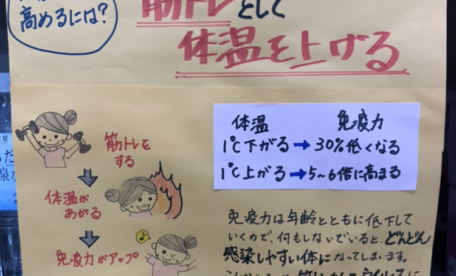 高めるには?
筋トレとして
体温を上げる
体温 免疫力
1℃下がる→30%低くなる
1℃上がる→5~6倍に高まる
筋トレを
する
体温が
あがる
免疫力がアップ
免疫力は年齢とともに低下して
いくので、何もしないでいると、どんどん
感染しやすい体になってしまいます。